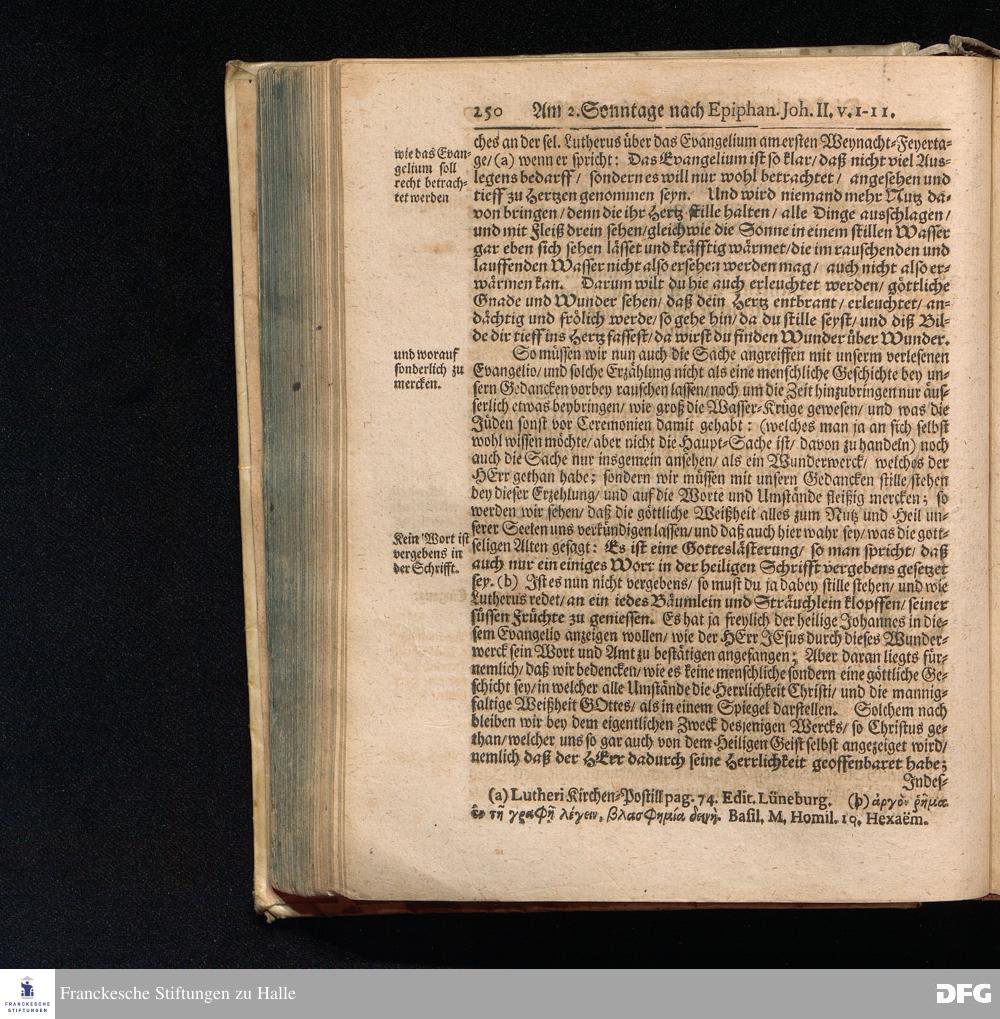 250 Am 2. Sonntage nach Epiphan. Joh. II. v. 1-11.
wie das Evan-
gelium soll
recht betrach-
tet werden
ches an der sel. Lutherus über das Evangelium am ersten Weynacht-Feyerta-
ge/ (a) wenn er spricht: Das Evangelium ist so klar/ daß nicht viel Aus-
legens bedarff/ sondern es will nur wohl betrachtet/ angesehen und
tieff zu Hertzen genommen seyn. Und wird niemand mehr Nutz da-
von bringen/ denn die ihr Hertz stille halten/ alle Dinge ausschlagen/
und mit Fleiß drein sehen/ gleich wie die Sonne in einem stillen Wasser
gar eben sich sehen lässet und kräfftig wärmet/ die im rauschenden und
lauffenden Wasser nicht also ersehen werden mag/ auch nicht also er-
wärmen kan. Darum wilt du hie auch erleuchtet werden/ göttliche
Gnade und Wunder sehen/ daß dein Hertz entbrant/ erleuchtet/ an-
dächtig und frölich werde/ so gehe hin/ da du stille seyst/ und diß Bil-
de dir tieff ins Hertz fassest/ da wirst du finden Wunder über Wunder.
und worauf
sonderlich zu
mercken.
So müssen wir nun auch die Sache angreiffen mit unserm verlesenen
Evangelio/ und solche Erzählung nicht als eine menschliche Geschichte bey un-
sern Gedancken vorbey rauschen lassen/ noch um die Zeit hinzubringen nur äus-
serlich etwas beybringen/ wie groß die Wasser-Krüge gewesen/ und was die
Jüden sonst vor Ceremonien damit gehabt: (welches man ja an sich selbst
wohl wissen möchte/ aber nicht die Haupt-Sache ist/ davon zu handeln) noch
auch die Sache nur insgemein ansehen/ als ein Wunderwerck/ welches der
HErr gethan habe; sondern wir müssen mit unsern Gedancken stille stehen
bey dieser Erzehlung/ und auf die Worte und Umstände fleißig mercken; so
werden wir sehen/ daß die göttliche Weißheit alles zum Nutz und Heil un-
serer Seelen uns verkündigen lassen/ und daß auch hier wahr sey/ was die gott-
Kein Wort ist
vergebens in
der Schrifft.
seligen Alten gesagt: Es ist eine Gotteslästerung/ so man spricht/ daß
auch nur ein einiges Wort in der heiligen Schrifft vergebens gesetzet
sey. (b) Ist es nun nicht vergebens/ so must du ja dabey stille stehen/ und wie
Lutherus redet/ an ein iedes Bäumlein und Sträuchlein klopffen/ seiner
süssen Früchte zu geniessen. Es hat ja freylich der heilige Johannes in die-
sem Evangelio anzeigen wollen/ wie der HErr JEsus durch dieses Wunder-
werck sein Wort und Amt zu bestätigen angefangen; Aber daran liegts für-
nemlich/ daß wir bedencken/ wie es keine menschliche sondern eine göttliche Ge-
schicht sey/ in welcher alle Umstände die Herrlichkeit Christi/ und die mannig-
faltige Weißheit GOttes/ als in einem Spiegel darstellen. Solchem nach
bleiben wir bey dem eigentlichen Zweck desjenigen Wercks/ so Christus ge-
than/ welcher uns so gar auch von dem Heiligen Geist selbst angezeiget wird/
nemlich daß der HErr dadurch seine Herrlichkeit geoffenbaret habe;
Indes-
(a) Lutheri Kirchen-Postill pag. 74. Edit. Lüneburg. (b) ἀργὸν ῥῆμα
ἐν τῇ γραφῇ λέγειν, βλασφημία δεινή. Basil. M. Homil. 10. Hexaëm.
FRANCKESCHE
STIFTUNGEN
Franckesche Stiftungen zu Halle
DFG